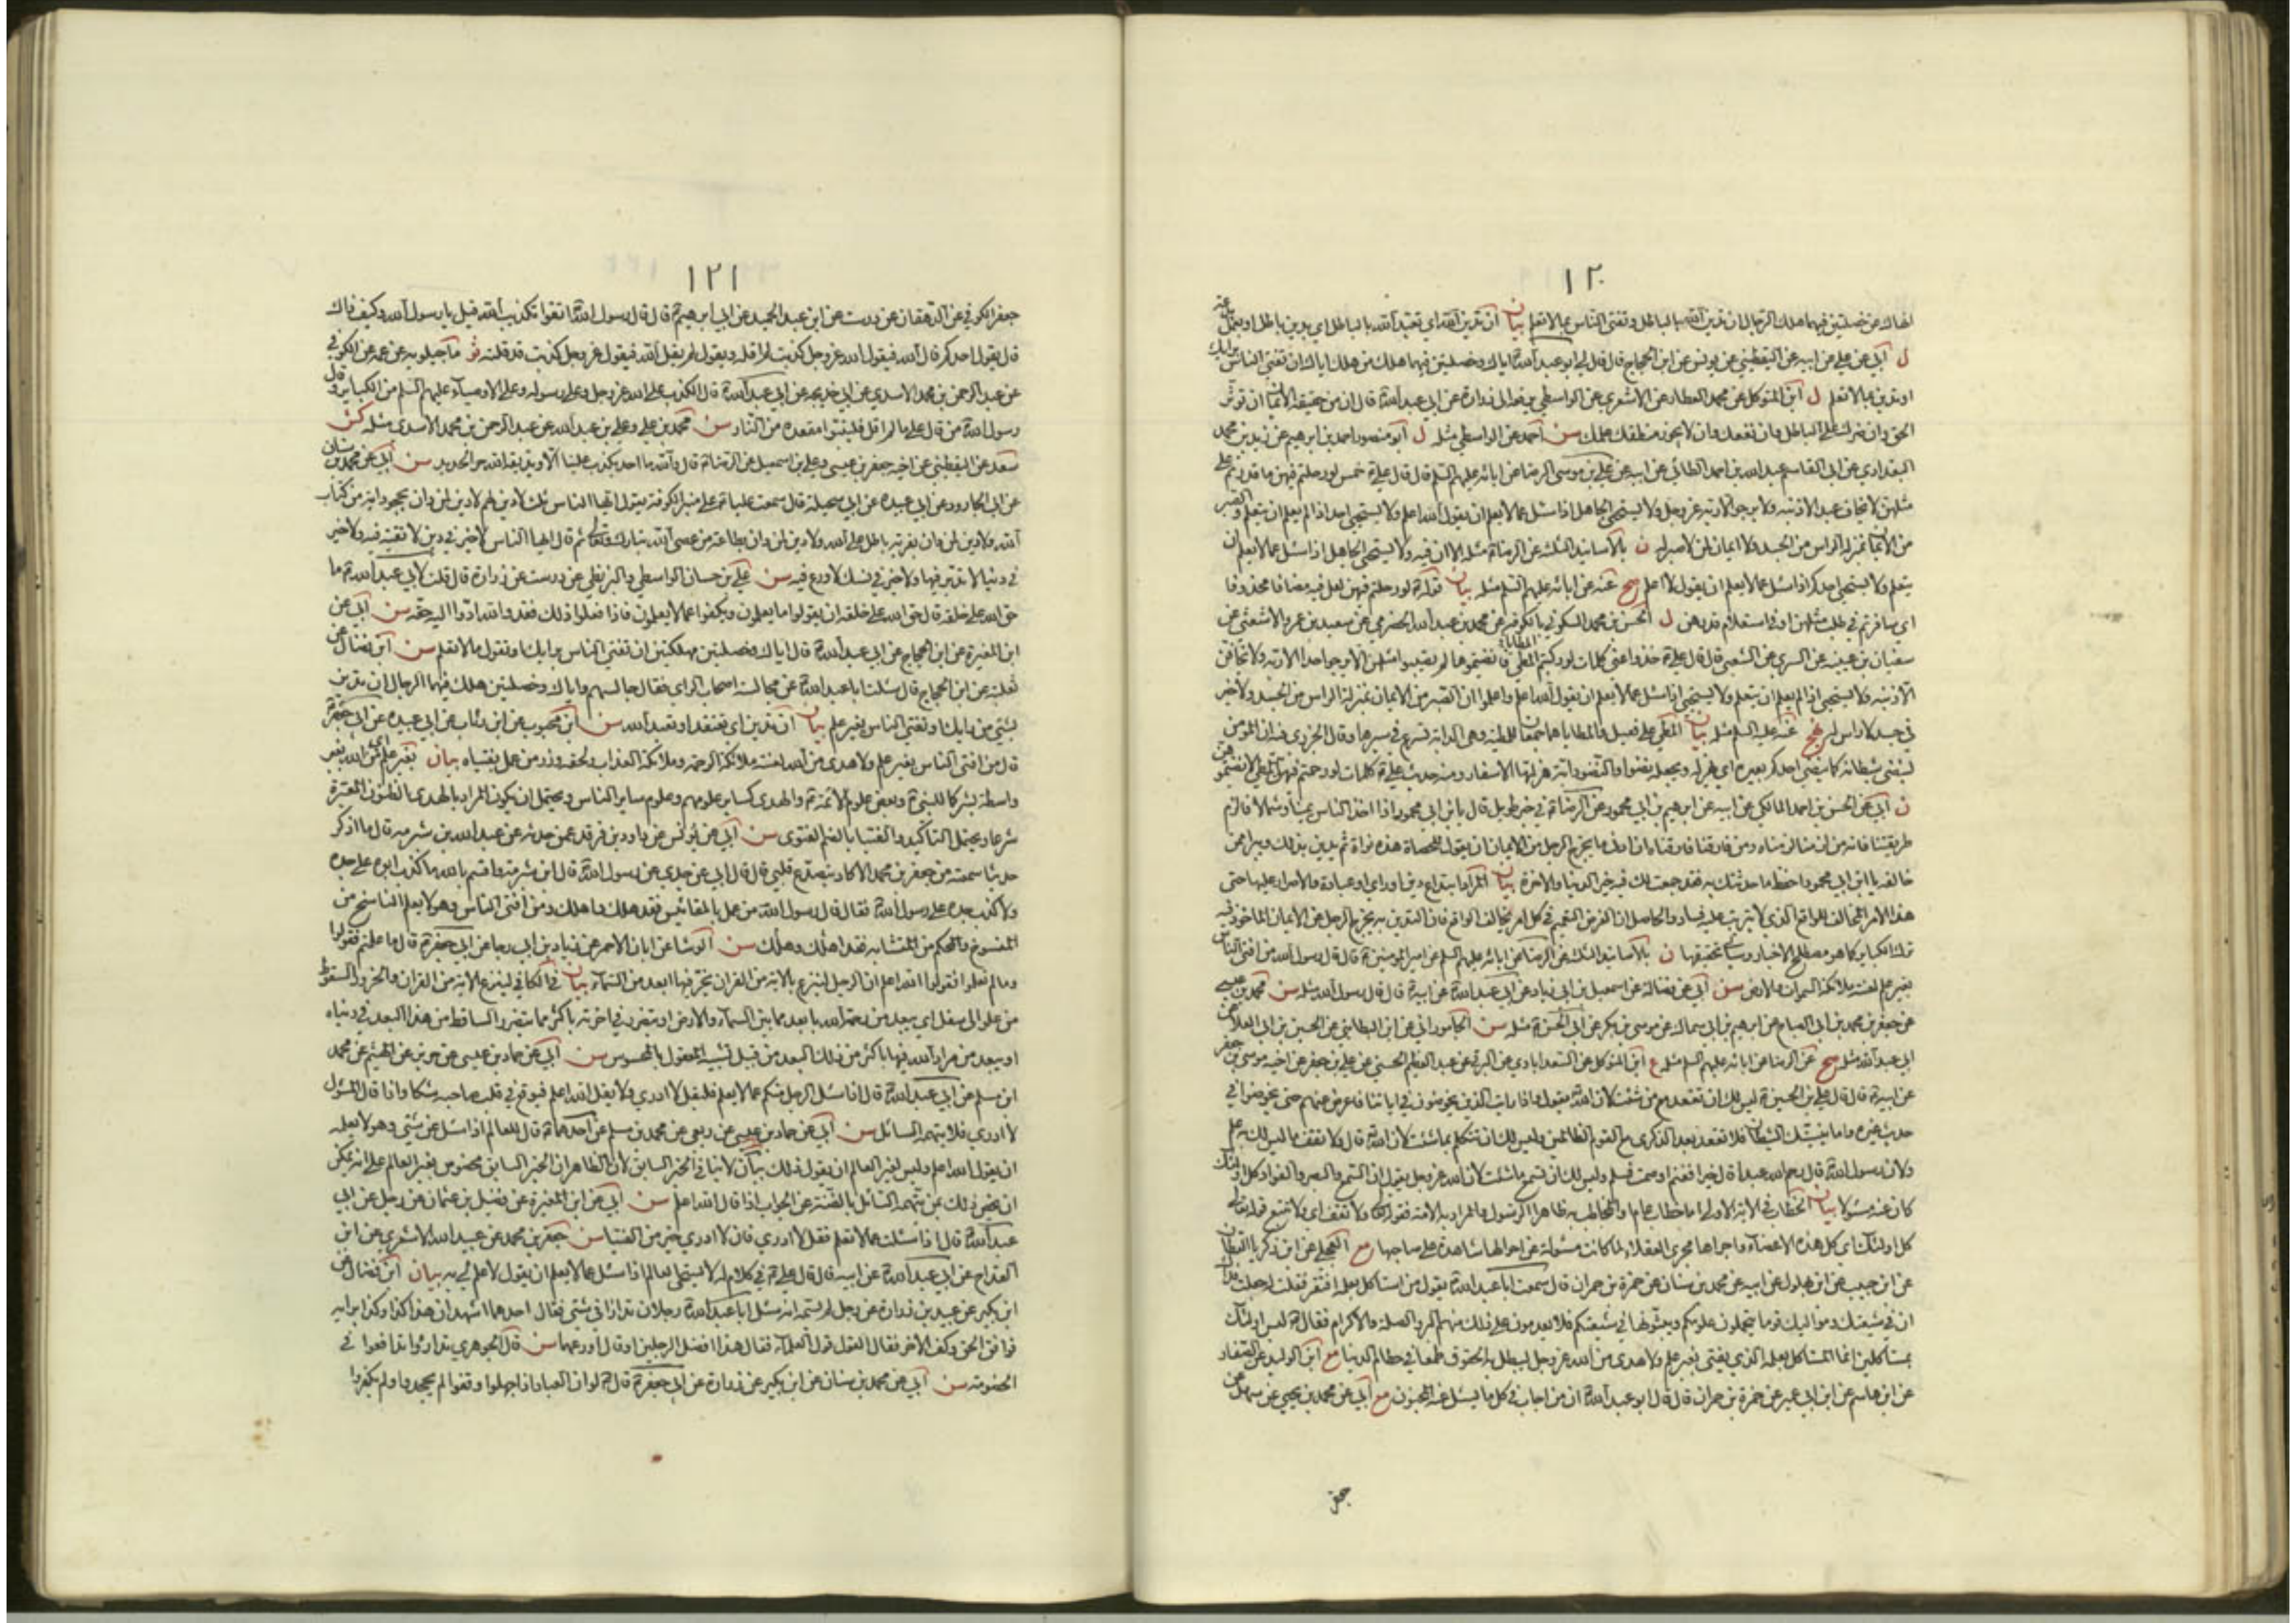 ١٢٠
انهاك عن خصلتين فيهما هلك الرجال ان تدين الله بالباطل وتفتي الناس بما لا تعلم بيان ان تدين الله اي تعبد الله بالباطل اي بدين باطل او بعمل
ل ابي عن علي عن ابيه عن اليقطيني عن يونس عن ابن الحجاج قال قال لي ابو عبد الله ع اياك وخصلتين فيهما هلك من هلك اياك ان تفتي الناس برايك
او تدين بما لا تعلم ل ابن المتوكل عن محمد العطار عن الاشعري عن الواسطي عن ابي عبد الله ع قال ان من حقيقة الايمان ان تؤثر
الحق وان ضرك على الباطل وان نفعك وان لا يجوز منطقك علمك سن احمد عن الواسطي مثله ل ابو منصور احمد بن ابرهيم عن زيد بن محمد
البغدادي عن ابي القاسم عبد الله بن احمد الطائي عن ابيه عن علي بن موسى الرضا عن ابائه عليهم السلم قال قال علي ع خمس لو رحلتم فيهن ما قدرتم على
مثلهن لا يخاف عبد الا ذنبه ولا يرجو الا ربه عز وجل ولا يستحيي الجاهل اذا سئل عما لا يعلم ان يقول الله اعلم ولا يستحيي احد اذا لم يعلم ان يتعلم والصبر
من الايمان بمنزلة الراس من الجسد ولا ايمان لمن لا صبر له ن بالاسانيد الثلثة عن الرضا ع مثله الا ان فيه ولا يستحيي الجاهل اذا سئل عما لا يعلم ان
يتعلم ولا يستحيي احدكم اذا سئل عما لا يعلم ان يقول لا اعلم صح عنه عن ابائه عليهم السلم مثله بيان قوله ع لو رحلتم فيهن لعل فيه مضافا محذوفا
اي سافرتم في طلب مثلهن او في استعلام قدرهن ل الحسن بن محمد السكوني بالكوفة عن محمد بن عبد الله الحضرمي عن سعيد بن عمرو الاشعثي عن
سفيان بن عيينه عن السري عن الشعبي قال قال علي ع خذوا عني كلمات لو ركبتم المطي فانضيتموها لم تصيبوا مثلهن الا يرجو احد الا ربه ولا يخافن
الا ذنبه ولا يستحيي اذا لم يعلم ان يتعلم ولا يستحيي اذا سئل عما لا يعلم ان يقول الله اعلم واعلموا ان الصبر من الايمان بمنزلة الراس من الجسد ولا خير
في جسد لا راس له نهج عنه عليه السلم مثله بيان المطي على فعيل والمطايا هما جمعان للمطية وهي الدابة تسرع في سيرها وقال الجزري فيه ان المؤمن
لينضي شيطانه كما ينضي احدكم بعيره اي يهزله ويجعله نضوا والنضو دابة هزلتها الاسفار ومنه حديث علي ع كلمات لو رحلتم فيهن المطي لانضيتموهن
ن ابي عن الحسن بن احمد المالكي عن ابيه عن ابرهيم بن ابي محمود عن الرضا ع في خبر طويل قال يا بن ابي محمود اذا اخذ الناس يمينا وشمالا فالزم
طريقتنا فانه من لزمنا لزمناه ومن فارقنا فارقناه ان ادنى ما يخرج الرجل من الايمان ان يقول للحصاة هذه نواة ثم يدين بذلك ويبرا ممن
خالفه يا ابن ابي محمود احفظ ما حدثتك به فقد جمعت لك فيه خير الدنيا والاخرة بيان المراد ابتداع دين او راي او عبادة والاصرار عليها حتى
ترك الكبائر كما هو مصطلح الاخبار وسياتي تحقيقها ن بالاسانيد الثلثة عن الرضا عن ابائه عليهم السلم عن امير المؤمنين ع قال قال رسول الله من افتى الناس
بغير علم لعنته ملائكة السموات والارض سن ابي عن فضالة عن اسمعيل بن ابي زياد عن ابي عبد الله ع عن ابيه ع قال قال رسول الله مثله سن محمد بن عيسى
عن جعفر بن محمد بن ابي الصباح عن ابرهيم بن ابي سماك عن موسى بن بكر عن ابي الحسن ع مثله سن الجاموراني عن ابن البطائني عن الحسين بن ابي العلا عن
ابي عبد الله مثله صح عن الرضا عن ابائه عليهم السلم مثله ع ابن المتوكل عن السعدابادي عن البرقي عن عبد العظيم الحسني عن علي بن جعفر عن اخيه موسى بن جعفر
عن ابيه ع قال قال علي بن الحسين ع ليس لك ان تقعد مع من شئت لان الله يقول واذا رايت الذين يخوضون في اياتنا فاعرض عنهم حتى يخوضوا في
حديث غيره واما ينسينك الشيطان فلا تقعد بعد الذكرى مع القوم الظالمين وليس لك ان تتكلم بما شئت لان الله قال ولا تقف ما ليس لك به علم
ولان رسول الله قال رحم الله عبدا قال خيرا فغنم او صمت فسلم وليس لك ان تسمع ما شئت لان الله عز وجل يقول ان السمع والبصر والفواد كل اولئك
كان عنه مسئولا بيان الخطاب في الاية الاولى اما خطاب عام او المخاطب به ظاهرا الرسول والمراد به الامة
كل اولئك اي كل هذه الاعضاء واجراها مجرى العقلاء لما كانت مسئولة عن احوالها شاهدة على صاحبها مع العجلي عن ابن زكريا القطان
عن ابن حبيب عن ابن بهلول عن ابيه عن محمد بن سنان عن حمزة بن حمران قال سمعت ابا عبد الله ع يقول من استاكل بعلمه افتقر فقلت له جعلت فداك
ان في شيعتك ومواليك قوما يتحملون علومكم ويبثونها في شيعتكم فلا يعدمون على ذلك منهم البر والصلة والاكرام فقال ع ليس اولئك
بمستاكلين انما المستاكل بعلمه الذي يفتي بغير علم ولا هدى من الله عز وجل ليبطل به الحقوق طمعا في حطام الدنيا مع ابن الوليد عن الصفار
عن ابن هاشم عن ابن ابي عمير عن حمزة بن حمران قال قال ابو عبد الله ع ان من اجاب في كل ما يسئل عنه لمجنون مع ابي عن محمد بن يحيى عن سهل عن
جعفر
١٢١
جعفر الكوفي عن الدهقان عن درست عن ابن عبد الحميد عن ابي ابرهيم ع قال قال رسول الله اتقوا تكذيب الله قيل يا رسول الله وكيف ذاك
قال يقول احدكم قال الله فيقول الله عز وجل كذبت لم اقله ويقول لم يقل الله فيقول عز وجل كذبت قد قلته ثو ماجيلويه عن عمه عن الكوفي
عن عبد الرحمن بن محمد الاسدي عن ابي خديجه عن ابي عبد الله ع قال الكذب على الله عز وجل وعلى رسوله وعلى الاوصياء عليهم السلم من الكبائر وقال
رسول الله من قال علي ما لم اقل فليتبوا مقعده من النار سن محمد بن علي وعلي بن عبد الله عن عبد الرحمن بن محمد الاسدي مثله كش
سعد عن اليقطيني عن اخيه جعفر بن عيسى وعلي بن اسمعيل عن الرضا ع قال والله ما احد يكذب علينا الا ويذيقه الله حر الحديد سن ابي عن محمد بن سنان
عن ابي الجارود عن ابي عبيدة عن ابي سخيلة قال سمعت عليا ع على منبر الكوفة يقول ايها الناس ثلث لا دين لهم لا دين لمن دان بجحود اية من كتاب
الله ولا دين لمن دان بفرية باطل على الله ولا دين لمن دان بطاعة من عصى الله تبارك وتعالى ثم قال ايها الناس لا خير في دين لا تفقه فيه ولا خير
في دنيا لا تدبر فيها ولا خير في نسك لا ورع فيه سن علي بن حسان الواسطي والبزنطي عن درست عن زرارة قال قلت لابي عبد الله ع ما
حق الله على خلقه قال حق الله على خلقه ان يقولوا ما يعلمون ويكفوا عما لا يعلمون فاذا فعلوا ذلك فقد والله ادوا اليه حقه سن ابي عن
ابن المغيرة عن ابن الحجاج عن ابي عبد الله ع قال اياك وخصلتين مهلكتين ان تفتي الناس برايك او تقول ما لا تعلم سن ابن فضال عن
ثعلبة عن ابن الحجاج قال سئلت ابا عبد الله ع عن مجالسة اصحاب الراي فقال جالسهم واياك وخصلتين هلك فيهما الرجال ان تدين
بشيء من رايك او تفتي الناس بغير علم بيان ان تدين اي تعتقد او تعبد الله سن ابن محبوب عن ابن رئاب عن ابي عبيده عن ابي جعفر ع
قال من افتى الناس بغير علم ولا هدى من الله لعنته ملائكة الرحمة وملائكة العذاب ولحقه وزر من عمل بفتياه بيان بغير علم اي من الله بغير
واسطة بشر كما للنبي وبعض علوم الائمة ع والهدى كساير علومهم وعلوم ساير الناس ويحتمل ان يكون المراد بالهدى الظنون المعتبرة
شرعا ويحتمل التاكيد والفتيا بالضم الفتوى سن ابي عن يونس عن داود بن فرقد عمن حدثه عن عبد الله بن شبرمه قال ما اذكر
حديثا سمعته من جعفر بن محمد الا كاد يتصدع قلبي قال قال ابي عن جدي عن رسول الله ع قال ابن شبرمة واقسم بالله ما كذب ابوه على جده
ولا كذب جده على رسول الله فقال قال رسول الله من عمل بالمقائيس فقد هلك واهلك ومن افتى الناس وهو لا يعلم الناسخ من
المنسوخ والمحكم من المتشابه فقد هلك واهلك سن الوشا عن ابان الاحمر عن زياد بن ابي رجا عن ابي جعفر ع قال ما علمتم فقولوا
وما لم تعلموا فقولوا الله اعلم ان الرجل لينتزع بالاية من القران يخر فيها ابعد من السماء بيان في الكافي لينتزع الاية من القران والخرور السقوط
من علو الى سفل اي يبعد من رحمة الله بابعد مما بين السماء والارض او يتضرر في اخرته باكثر مما يتضرر الساقط من هذا البعد في دنياه
او يبعد من مراد الله فيها باكثر من ذلك البعد من قبيل تشبيه المعقول بالمحسوس سن ابي عن حماد بن عيسى عن حريز عن الهيثم عن محمد
ابن مسلم عن ابي عبد الله ع قال اذا سئل الرجل منكم عما لا يعلم فليقل لا ادري ولا يقل الله اعلم فيوقع في قلب صاحبه شكا واذا قال المسئول
لا ادري فلا يتهمه السائل سن ابي عن حماد بن عيسى عن ربعي عن محمد بن مسلم عن احدهما ع قال للعالم اذا سئل عن شيء وهو لا يعلمه
ان يقول الله اعلم وليس لغير العالم ان يقول ذلك بيان لا ينافي الخبر السابق لان الظاهر ان الخبر السابق مخصوص بغير العالم على انه يمكن
ان يخص ذلك بمن يتهمه السائل بالضنة عن الجواب اذا قال الله اعلم سن ابي عن ابن المغيرة عن فضيل بن عثمان عن رجل عن ابي
عبد الله ع قال اذا سئلت عما لا تعلم فقل لا ادري فان لا ادري خير من الفتيا سن جعفر بن محمد عن عبيد الله الاشعري عن ابن
القداح عن ابي عبد الله ع عن ابيه قال قال علي ع في كلام له لا يستحيي العالم اذا سئل عما لا يعلم ان يقول لا علم لي به بيان ابن فضال عن
ابن بكير عن عبيد بن زرارة عن رجل لم يسمه انه سئل ابا عبد الله ع رجلان تدارءا في شيء فقال احدهما اشهد ان هذا كذا وكذا برايه
فوافق الحق وكف الاخر فقال القول قول العلماء فقال هذا افضل الرجلين او قال اورعهما سن قال الجوهري تدارؤا تدافعوا في
الخصومة سن ابي عن محمد بن سنان عن ابن بكير عن زرارة عن ابي جعفر ع قال لو ان العباد اذا جهلوا وقفوا لم يجحدوا ولم يكفروا